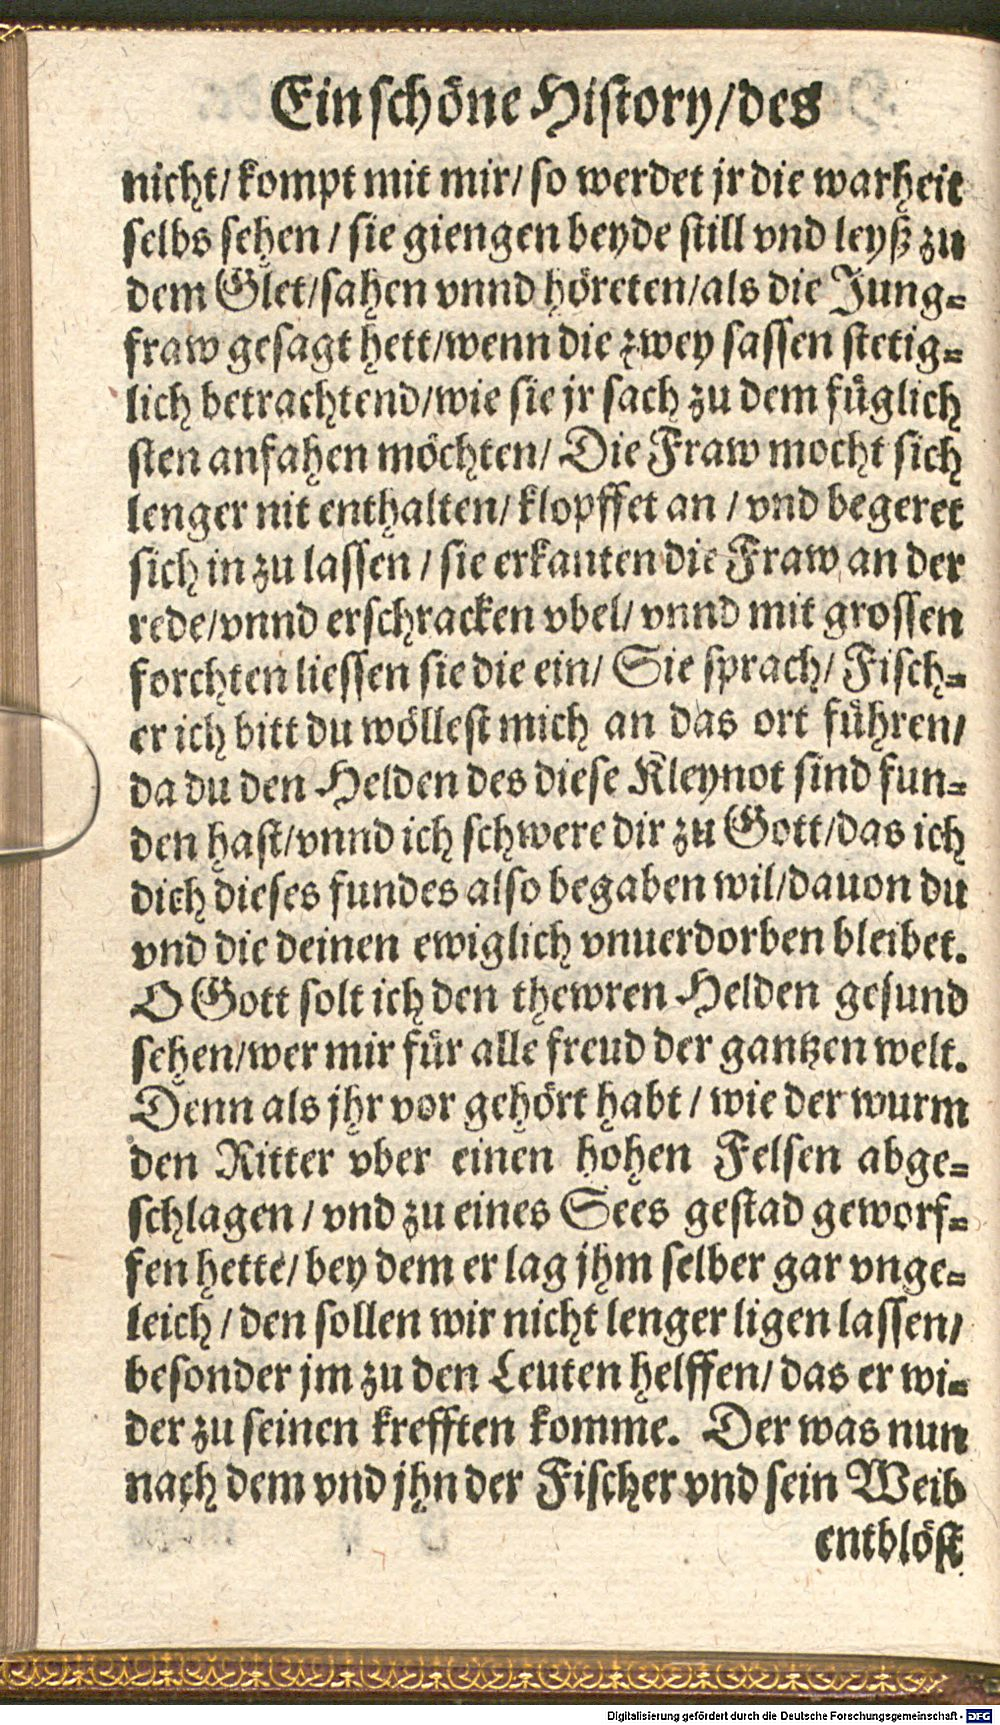 Ein schöne History/des
nicht/ kompt mit mir/ so werdet jr die warheit
selbs sehen / sie giengen beyde still vnd leyß zu
dem Glet/sahen vnnd höreten/als die Jung=
fraw gesagt hett/wenn die zwey sassen stetig=
lich betrachtend/wie sie jr sach zu dem füglich
sten anfahen möchten/ Die Fraw mocht sich
lenger nit enthalten/ klopffet an / vnd begeret
sich in zu lassen / sie erkanten die Fraw an der
rede/vnnd erschracken vbel/ vnnd mit grossen
forchten liessen sie die ein/ Sie sprach/ Fisch=
er ich bitt du wöllest mich an das ort führen/
da du den Helden des diese Kleynot sind fun=
den hast/vnnd ich schwere dir zu Gott/das ich
dich dieses fundes also begaben wil/dauon du
vnd die deinen ewiglich vnuerdorben bleibet.
O Gott solt ich den thewren Helden gesund
sehen/wer mir für alle freud der gantzen welt.
Denn als jhr vor gehört habt / wie der wurm
den Ritter vber einen hohen Felsen abge=
schlagen / vnd zu eines Sees gestad geworf=
fen hette/ bey dem er lag jhm selber gar vnge=
leich / den sollen wir nicht lenger ligen lassen/
besonder jm zu den Leuten helffen/ das er wi=
der zu seinen krefften komme. Der was nun
nach dem vnd jhn der Fischer vnd sein Weib
entblöst
Digitalisierung gefördert durch die Deutsche Forschungsgemeinschaft - DFG